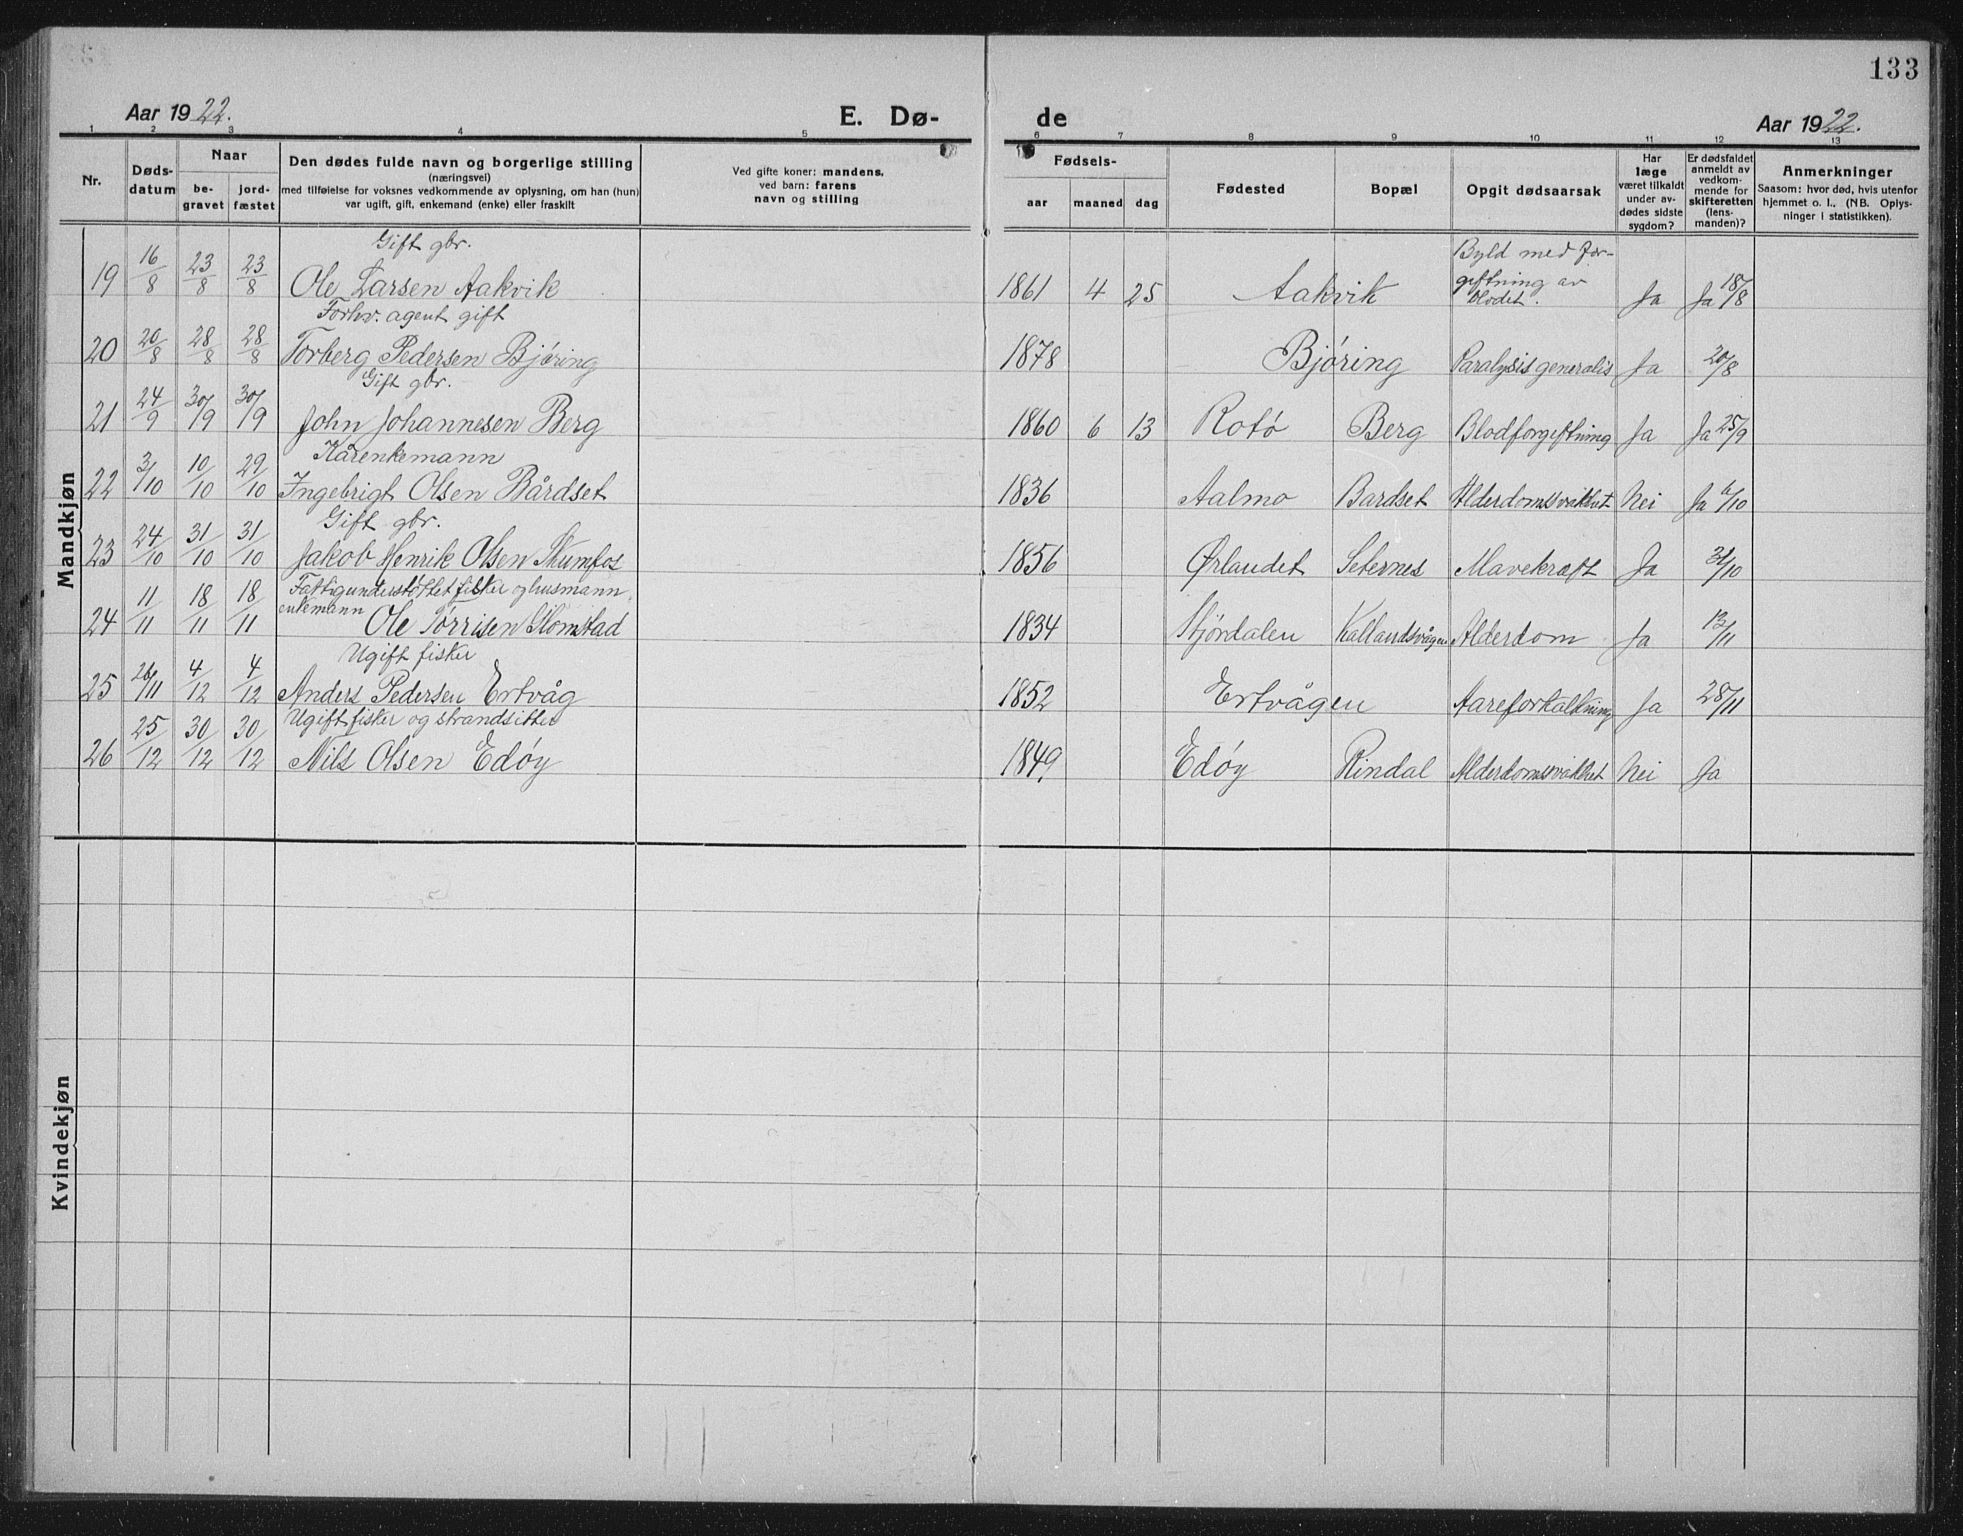 133
Aar 1922. E. Dø- de Aar 1922.
1 2 3 4 5 6 7 8 9 10 11 12 13
Nr.
Døds-
datum
Naar
be-
gravet
jord-
fæstet
Den dødes fulde navn og borgerlige stilling
(næringsvei)
med tilføielse for voksnes vedkommende av oplysning, om han (hun)
var ugift, gift, enkemand (enke) eller fraskilt
Ved gifte koner: mandens,
ved barn: farens
navn og stilling
Fødsels-
aar maaned dag
Fødested
Bopæl
Opgit dødsaarsak
Har
læge
været tilkaldt
under av-
dødes sidste
sygdom?
Er dødsfaldet
anmeldt av
vedkom-
mende for
skifteretten
(lens-
manden)?
Anmerkninger
Saasom: hvor død, hvis utenfor
hjemmet o. l., (NB. Oplys-
ninger i statistikken).
Mandkjøn
Gift gbr. Byld med for-
giftning av
19 16/8 23/8 23/8 Ole Larsen Aakvik 1861 4 25 Aakvik blodet. Ja Ja 18/8
Forhv. agent gift
20 20/8 28/8 28/8 Torberg Pedersen Bjøring 1878 Bjøring Paralysis generalis Ja 20/8
Gift gbr.
21 24/9 30/9 30/9 John Johannesen Berg 1860 6 13 Rotø Berg Blodforgiftning Ja Ja 25/9
Kårenkemann
22 3/10 10/10 29/10 Ingebrigt Olsen Bårdset 1836 Aalmo Bardset Alderdomssvakhet Nei Ja 6/10
Gift gbr.
23 24/10 31/10 31/10 Jakob Henrik Olsen Skumfos 1856 Ørlandet Seternes Mavekræft Ja 31/10
Fattigunderstøttet fisker og husmann
enkemann
24 11/11 18/11 18/11 Ole Tørrisen 1834 Stjørdalen Kallandsvågen Alderdom Ja 13/11
Ugift fisker
25 26/11 4/12 4/12 Anders Pedersen Ertvåg 1852 Ertvågen Aareforkalkning Ja 28/11
Ugift fisker og strandsitter
26 25/12 30/12 30/12 Nils Olsen Edøy 1849 Edøy Rindal Alderdomssvakhet Nei Ja
Kvindekjøn